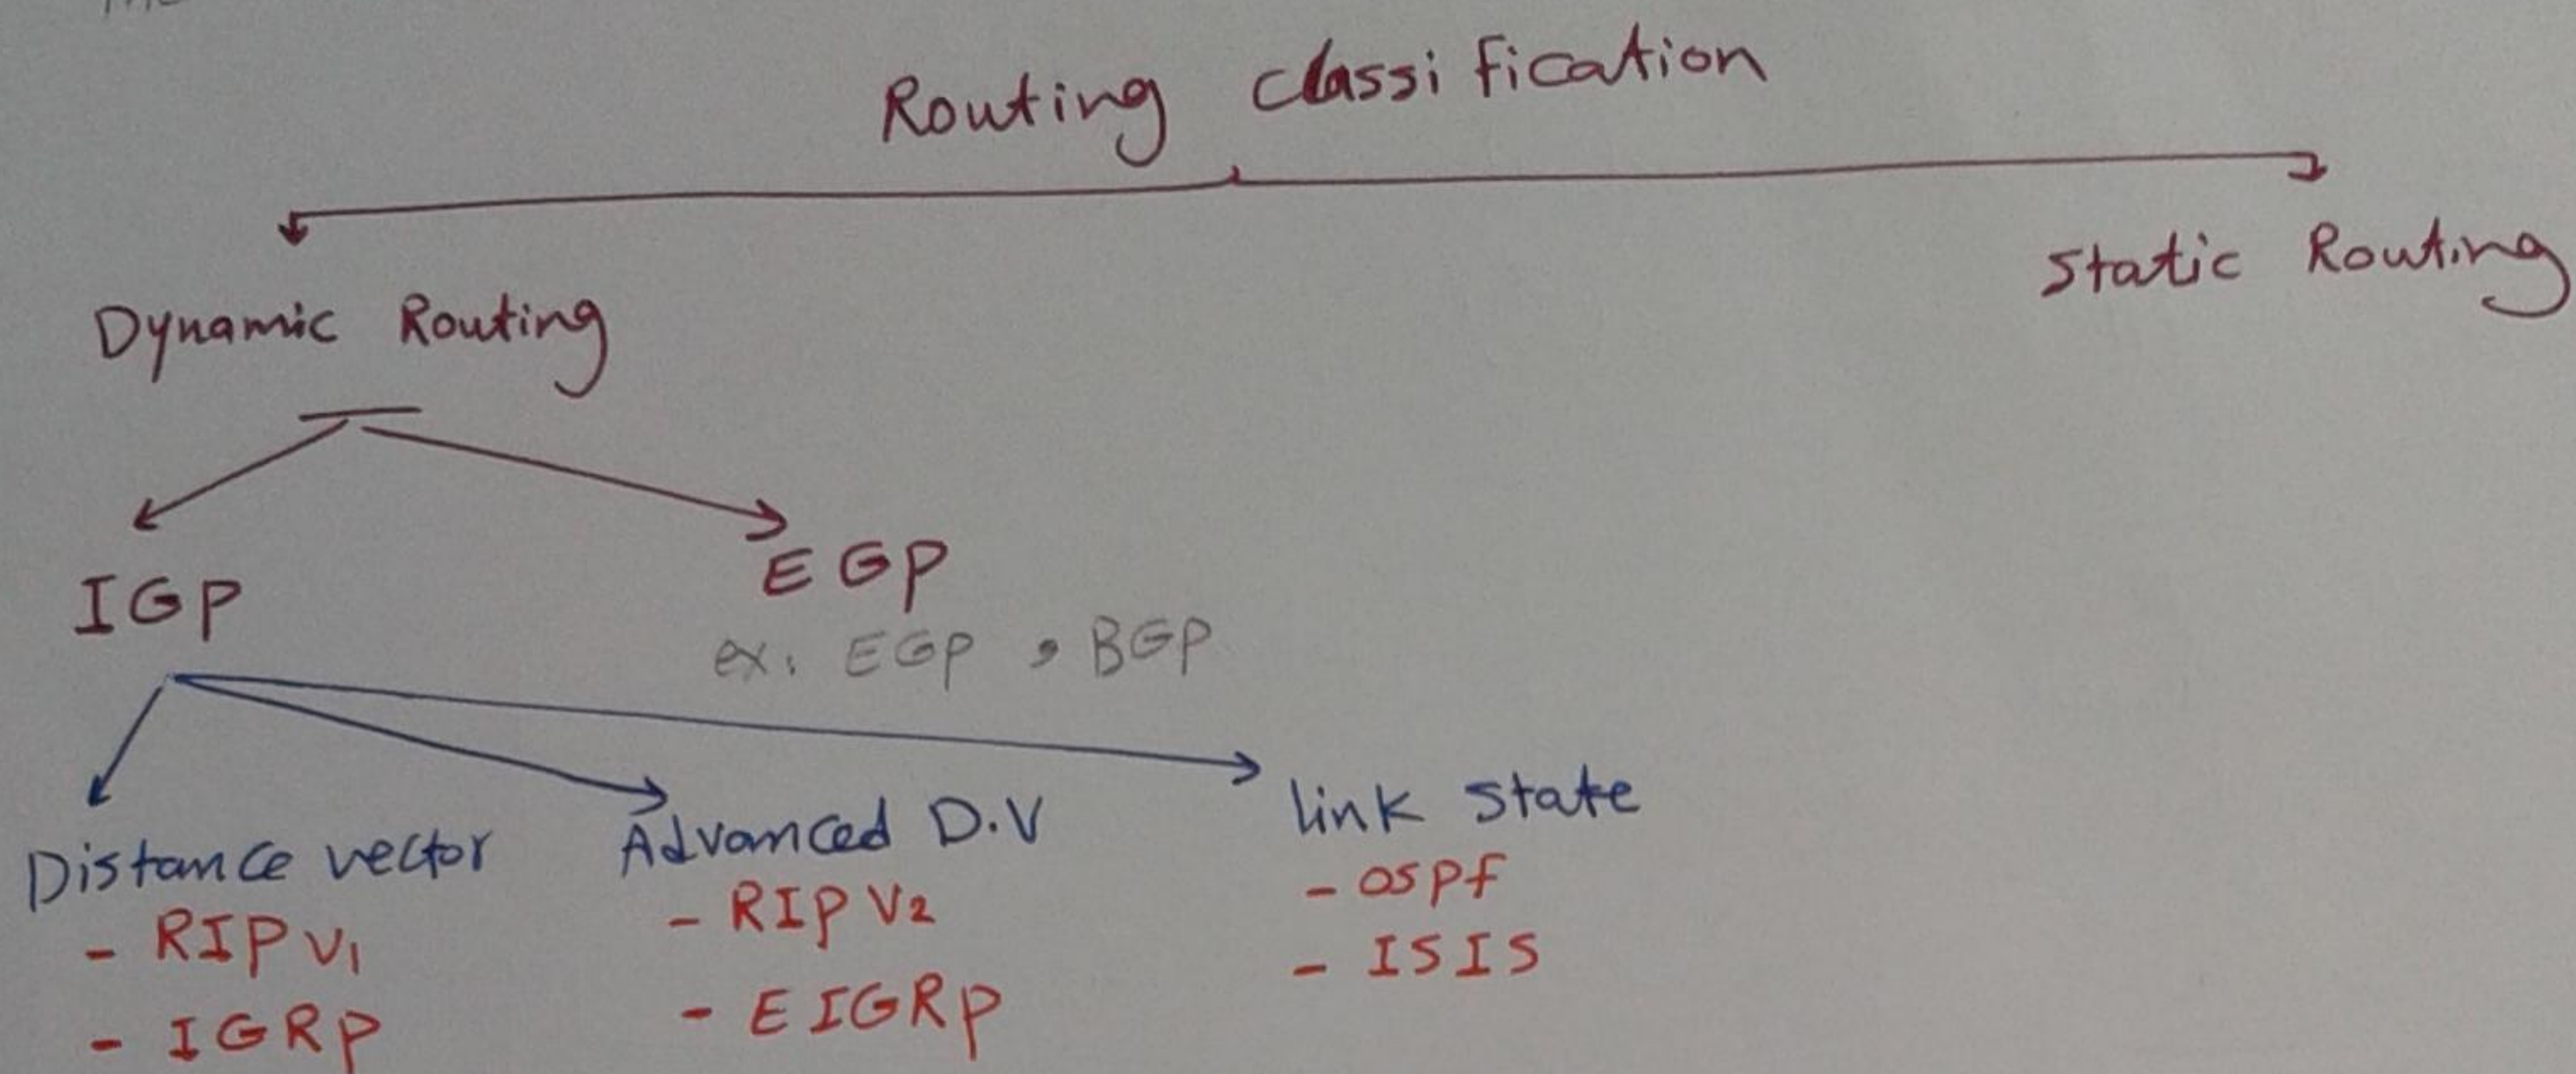 Routing classification
Dynamic Routing
Static Routing
IGP
EGP
ex. EGP , BGP
Distance vector
- RIP v1
- IGRP
Advanced D.V
- RIP v2
- EIGRP
link state
- ospf
- ISIS